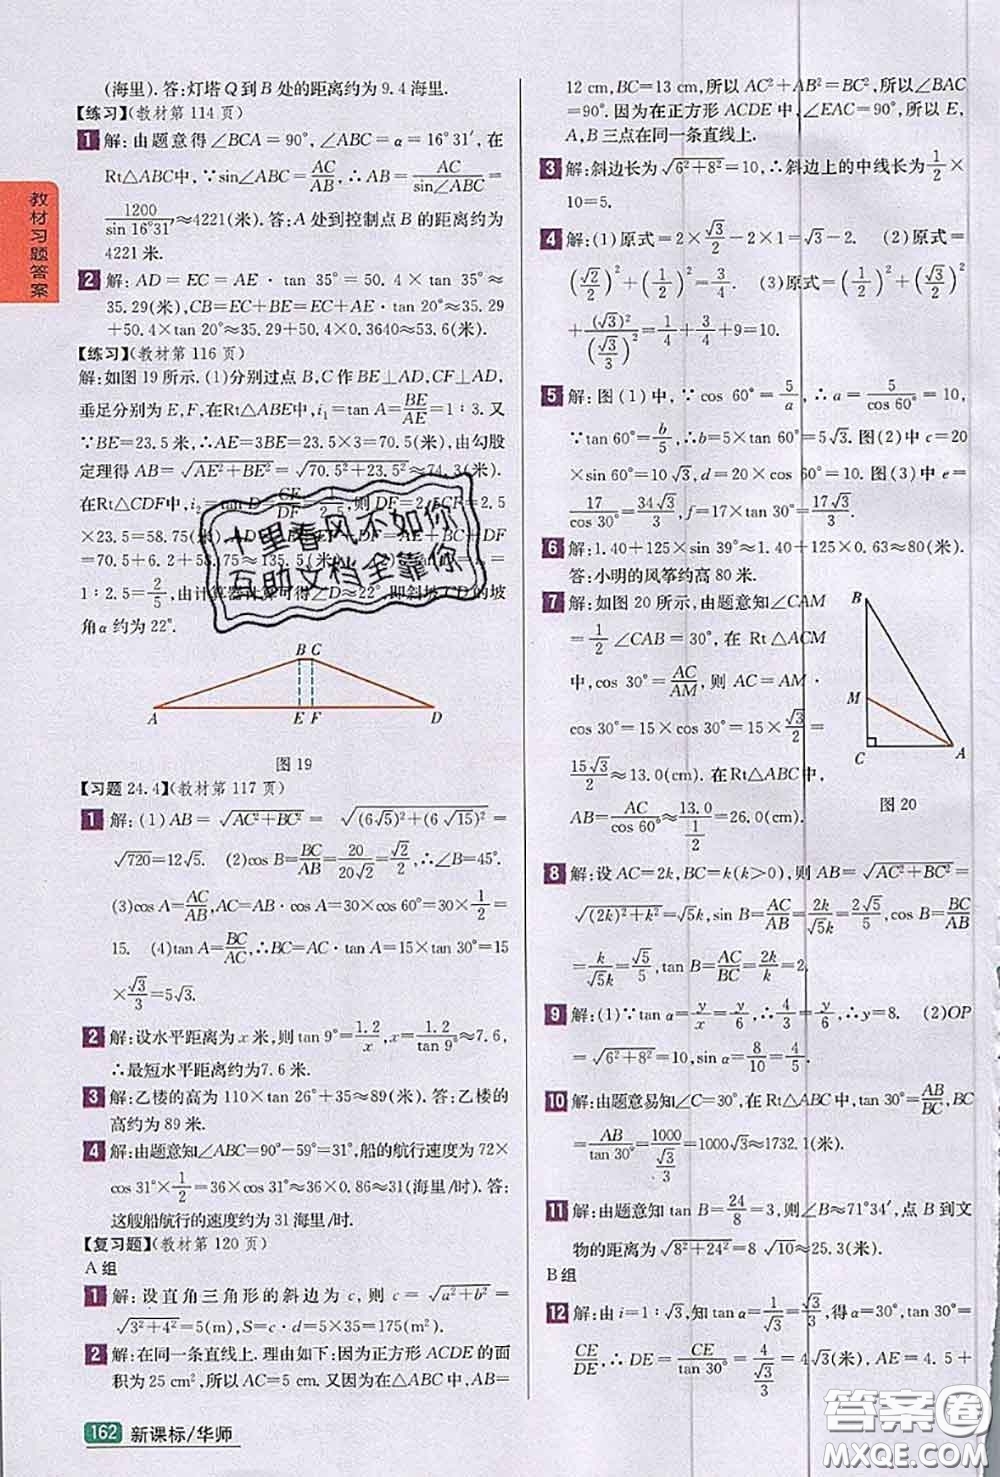 (海里). 答:灯塔 Q 到 B 处的距离约为 9.4 海里.
【练习】(教材第 114 页)
1 解:由题意得∠BCA=90°,∠ABC=α=16°31′,在
Rt△ABC中,∵sin∠ABC=AC/AB,∴AB=AC/sin∠ABC=
1200/sin 16°31′≈4221(米). 答:A 处到控制点 B 的距离约为
4221 米.
2 解:AD=EC=AE·tan 35°=50.4×tan 35°≈
35.29(米),CB=EC+BE=EC+AE·tan 20°≈35.29
+50.4×tan 20°≈35.29+50.4×0.3640≈53.6(米).
【练习】(教材第 116 页)
解:如图 19 所示. (1)分别过点 B,C 作 BE⊥AD,CF⊥AD,
垂足分别为 E,F,在Rt△ABE中,i₁=tan A=BE/AE=1∶3. 又
∵BE=23.5 米,∴AE=3BE=23.5×3=70.5(米),由勾股
定理得 AB=√(AE²+BE²)=√(70.5²+23.5²)≈74.3(米).
在Rt△CDF中,i₂=tan D=CF/DF=1/2.5,则 DF=2.5CF=2.5
×23.5=58.75(米),
1∶2.5=2/5,由计算器计算可得∠D≈22°,即斜坡 CD 的坡
角α约为 22°.
B C
A E F D
图 19
【习题 24.4】(教材第 117 页)
1 解:(1)AB=√(AC²+BC²)=√((6√5)²+(6√15)²)=
√720=12√5. (2)cos B=BC/AB=20/(20√2)=√2/2,∴∠B=45°.
(3)cos A=AC/AB,∴AC=AB·cos A=30×cos 60°=30×1/2=
15. (4)tan A=BC/AC,∴BC=AC·tan A=15×tan 30°=15
×√3/3=5√3.
2 解:设水平距离为 x 米,则tan 9°=1.2/x,x=1.2/tan 9°≈7.6,
∴最短水平距离约为7.6 米.
3 解:乙楼的高为 110×tan 26°+35≈89(米). 答:乙楼的
高约为 89 米.
4 解:由题意知∠ABC=90°-59°=31°,船的航行速度为 72×
cos 31°×1/2=36×cos 31°≈31(海里/时). 答:
这艘船航行的速度约为 31 海里/时.
【复习题】(教材第 120 页)
A 组
1 解:设直角三角形的斜边为 c,则 c=√(a²+b²)=
√(3²+4²)=5(m),S=c·d=5×35=175(m²).
2 解:在同一条直线上. 理由如下:因为正方形 ACDE 的面
积为 25 cm²,所以 AC=5 cm. 又因为在△ABC中,AB=
162 新课标/华师
12 cm,BC=13 cm,所以 AC²+AB²=BC²,所以∠BAC
=90°. 因为在正方形 ACDE 中,∠EAC=90°,所以 E,
A,B 三点在同一条直线上.
3 解:斜边长为√(6²+8²)=10,∴斜边上的中线长为1/2
×10=5.
4 解:(1)原式=2×√3/2-2×1=√3-2. (2)原式=
(√2/2)²+(1/2)²=3/4. (3)原式=(1/2)²+(√3/2)²
+(√3)²/(√3/3)²=1/4+3/4+9=10.
5 解:图(1)中,∵cos 60°=5/a,∴a=5/cos 60°=10,
∵tan 60°=b/5,∴b=5×tan 60°=5√3. 图(2)中 c=20
×sin 60°=10√3,d=20×cos 60°=10. 图(3)中 e=
17/cos 30°=34√3/3,f=17×tan 30°=17√3/3.
6 解:1.40+125×sin 39°≈1.40+125×0.63≈80(米).
答:小明的风筝约高 80 米.
7 解:如图 20 所示,由题意知∠CAM
=1/2∠CAB=30°,在 Rt△ACM
中,cos 30°=AC/AM,则 AC=AM×
cos 30°=15×cos 30°=15×√3/2=
15√3/2≈13.0(cm). 在Rt△ABC中,
AB=AC/cos 60°≈13.0/(1/2)=26.0(cm).
B
M
C A
图 20
8 解:设 AC=2k,BC=k(k>0),则 AB=√(AC²+BC²)=
√((2k)²+k²)=√5k,sin B=AC/AB=2k/√5k=2√5/5,cos B=BC/AB=
k/√5k=√5/5,tan B=AC/BC=2k/k=2.
9 解:(1)∵tan α=y/x=y/6,∴4/3=y/6,∴y=8. (2)OP
=√(6²+8²)=10,sin α=8/10=4/5.
10 解:由题意易知∠C=30°,在Rt△ABC中,tan 30°=AB/BC,BC
=AB/tan 30°=1000/(√3/3)=1000√3≈1732.1(米).
11 解:由题意知 tan B=24/8=3,则∠B≈71°34′,点 B 到文
物的距离为√(8²+24²)=8√10≈25.3(米).
B 组
12 解:由 i=1∶√3,知 tan α=1/√3=√3/3,得α=30°,tan 30°=
CE/DE,∴DE=CE/tan 30°=4/(√3/3)=4√3(米),AE=4.5+
教材习题答案
十里春风不如你
互助文档全靠你
答案圈
MXQE.COM